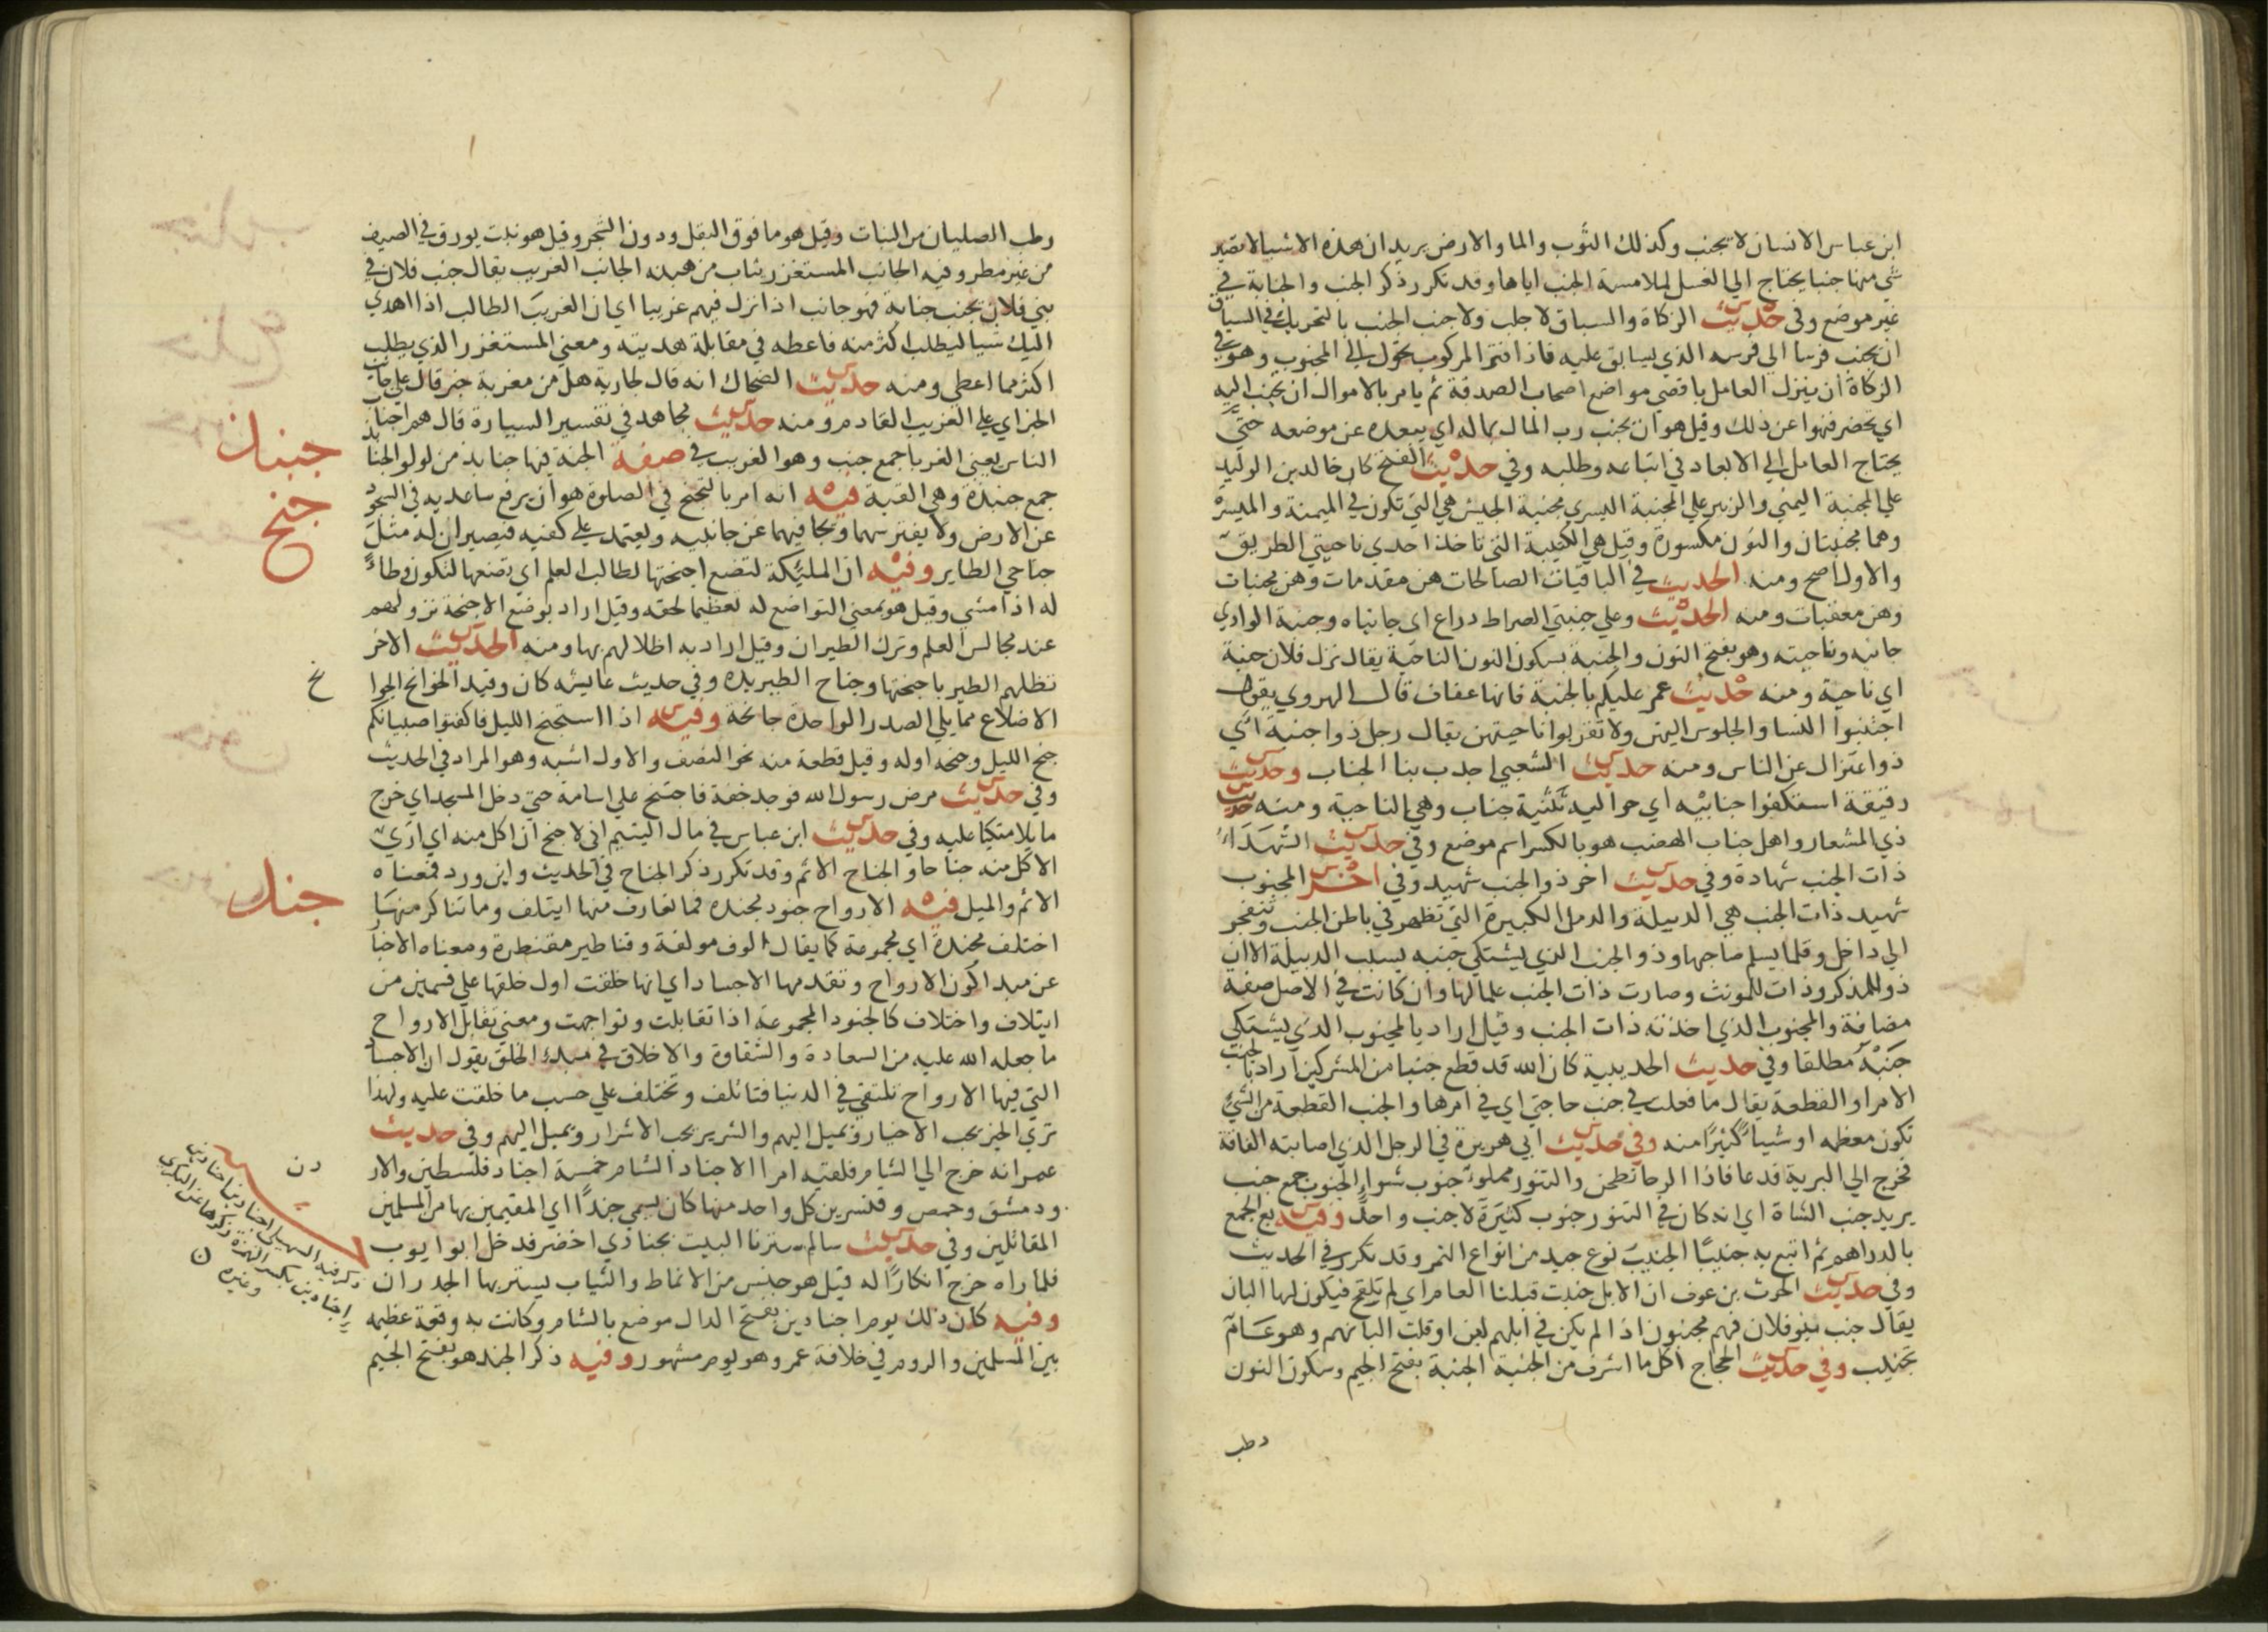 ابن عباس الانسان لا يجنب وكذلك الثوب والما والارض يريد ان هذه الاشيا لا يصير
شي منها جنبا يحتاج الي الغسل لملامسة الجنب اياها وقد تكرر ذكر الجنب والجنابة في
غير موضع وفي حديث الزكاة والسباق لا جلب ولا جنب الجنب بالتحريك في السباق
ان يجنب فرسا الي فرسه الذي يسابق عليه فاذا فتر المركوب تحول الي المجنوب وهو في
الزكاة ان ينزل العامل باقصي مواضع اصحاب الصدقة ثم يامر بالاموال ان تجنب اليه
اي تحضر فنهوا عن ذلك وقيل هو ان يجنب رب المال بماله اي يبعده عن موضعه حتي
يحتاج العامل الي الابعاد في اتباعه وطلبه وفي حديث الفتح كان خالد بن الوليد
علي المجنبة اليمني والزبير علي المجنبة اليسري مجنبة الجيش هي التي تكون في الميمنة والميسرة
وهما مجنبتان والنون مكسورة وقيل هي الكتيبة التي تاخذ احدي ناحيتي الطريق
والاول اصح ومنه الحديث في الباقيات الصالحات هن مقدمات وهن مجنبات
وهن معقبات ومنه الحديث وعلي جنبتي الصراط داع اي جانباه وجنبة الوادي
جانبه وناحيته وهو بفتح النون والجنبة بسكون النون الناحية يقال نزل فلان جنبة
اي ناحية ومنه حديث عمر عليكم بالجنبة فانها عفاف قال الهروي يقول
اجتنبوا النسا والجلوس اليهن ولا تقربوا ناحيتهن يقال رجل ذو جنبة اي
ذو اعتزال عن الناس ومنه حديث الشعبي اجدب بنا الجناب وحديث
رقيقة استكفوا جنابيه اي حواليه تثنية جناب وهي الناحية ومنه حديث
ذي المشعار واهل جناب الهضب هو بالكسر اسم موضع وفي حديث الشهداء
ذات الجنب شهادة وفي حديث اخر ذو الجنب شهيد وفي اخر المجنوب
شهيد ذات الجنب هي الدبيلة والدمل الكبيرة التي تظهر في باطن الجنب وتنفجر
الي داخل وقلما يسلم صاحبها وذو الجنب الذي يشتكي جنبه بسبب الدبيلة الا ان
ذو للمذكر وذات للمونث وصارت ذات الجنب علما لها وان كانت في الاصل صفة
مضافة والمجنوب الذي اخذته ذات الجنب وقيل اراد بالمجنوب الذي يشتكي
جنبه مطلقا وفي حديث الحديبية كان الله قد قطع جنبا من المشركين اراد بالجنب
الامر او القطعة يقال ما فعلت في جنب حاجتي اي في امرها والجنب القطعة من الشي
تكون معظمه او شيئا كثيرا منه وفي حديث ابي هريرة في الرجل الذي اصابته الفاقة
فخرج الي البرية فدعا فاذا الرحا تطحن والتنور مملوء جنوب شواء الجنوب جمع جنب
يريد جنب الشاة اي انه كان في التنور جنوب كثيرة لا جنب واحد وفيه بع الجمع
بالدراهم ثم ابتع به جنيبا الجنيب نوع جيد من انواع التمر وقد تكرر في الحديث
وفي حديث الحرث بن عوف ان الابل جنبت قبلنا العام اي لم تلقح فيكون لها البان
يقال جنب بنو فلان فهم مجنبون اذا لم يكن في ابلهم لبن او قلت البانهم وهو عام
تجنيب وفي حديث الحجاج اكل ما اشرف من الجنبة الجنبة بفتح الجيم وسكون النون
رطب
رطب الصليان من النبات وقيل هو ما فوق البقل ودون الشجر وقيل هو نبت يورق في الصيف
من غير مطر وفيه الجانب المستغزر يثاب من هبته الجانب الغريب يقال جنب فلان في
بني فلان يجنب جنابة فهو جانب اذا نزل فيهم غريبا اي ان الغريب الطالب اذا اهدي
اليك شيا ليطلب اكثر منه فاعطه في مقابلة هديته ومعني المستغزر الذي يطلب
اكثر مما اعطي ومنه حديث الضحاك انه قال لجارية هل من مغربة خبر قال علي جانب
الخبر اي علي الغريب القادم ومنه حديث مجاهد في تفسير السيارة قال هم اجناب
الناس يعني الغربا جمع جنب وهو الغريب في صفة الجنة فيها جنابذ من لولو الجنابذ
جمع جنبذة وهي القبة فيه انه امر بالتجنح في الصلوة هو ان يرفع ساعديه في السجود
عن الارض ولا يفترشهما ويجافيهما عن جانبيه ويعتمد علي كفيه فيصيران له مثل
جناحي الطاير وفيه ان المليكة لتضع اجنحتها لطالب العلم اي تضعها لتكون وطاء
له اذا مشي وقيل هو بمعني التواضع له تعظيما لحقه وقيل اراد بوضع الاجنحة نزولهم
عند مجالس العلم وترك الطيران وقيل اراد به اظلالهم بها ومنه الحديث الاخر
تظلهم الطير باجنحتها وجناح الطير يده وفي حديث عايشه كان وقيد الجوانح الجوا
الاضلاع مما يلي الصدر الواحدة جانحة وفيه اذا استجنح الليل فاكفتوا صبيانكم
جنح الليل وجنحه اوله وقيل قطعة منه نحو النصف والاول اشبه وهو المراد في الحديث
وفي حديث مرض رسول الله فوجد خفة فاجتنح علي اسامة حتي دخل المسجد اي خرج
مايلا متكيا عليه وفي حديث ابن عباس في مال اليتيم اني لاجنح ان اكل منه اي اري
الاكل منه جناحا والجناح الاثم وقد تكرر ذكر الجناح في الحديث واين ورد فمعناه
الاثم والميل فيه الارواح جنود مجنده فما تعارف منها ايتلف وما تناكر منها
اختلف مجندة اي مجموعة كما يقال الوف مولفة وقناطير مقنطرة ومعناه الاخبا
عن مبدا كون الارواح وتقدمها الاجساد اي انها خلقت اول خلقها علي قسمين من
ايتلاف واختلاف كالجنود المجموعة اذا تقابلت وتواجهت ومعني تقابل الارواح
ما جعله الله عليه من السعادة والشقاوة والاخلاق في مبدء الخلق يقول ان الاجسا
التي فيها الارواح تلتقي في الدنيا فتاتلف وتختلف علي حسب ما خلقت عليه ولهذا
تري الخير يحب الاخيار ويميل اليهم والشرير يحب الاشرار ويميل اليهم وفي حديث
عمر انه خرج الي الشام فلقيه امرا الاجناد الشام خمسة اجناد فلسطين والار
ودمشق وحمص وقنسرين كل واحد منها كان يسمي جندا اي المقيمين بها من المسلمين
المقاتلين وفي حديث سالم سترنا البيت بجنادي اخضر فدخل ابو ايوب
فلما راه خرج انكارا له قيل هو جنس من الانماط والثياب يستر بها الجدران
وفيه كان ذلك يوم اجنادين بفتح الدال موضع بالشام وكانت به وقعة عظيمه
بين المسلمين والروم في خلافة عمر وهو يوم مشهور وفيه ذكر الجند هو بفتح الجيم
جنبذ
جنح
نح
جند
دن
ذكر فيه السهيلي اجنادين اجنادين
اجنادين بكسر الهمزة ذكرها عن البكري
وغيره ن